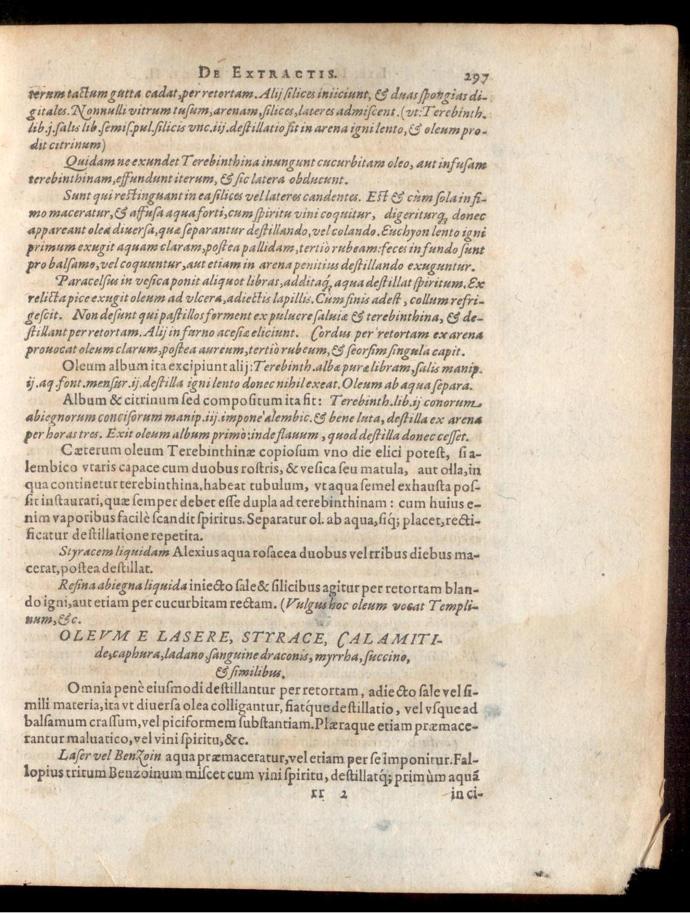 DE EXTRACTIS. 297
terum tactum gutta cadat, per retortam. Alij silices iniiciunt, & duas spongias di-
gitales. Nonnulli vitrum tusum, arenam, silices, lateres admiscent. (vt: Terebinth.
lib.j. salis lib. semis. pul. silicis vnc.iij. destillatio fit in arena igni lento, & oleum pro-
dit citrinum)
Quidam ne exundet Terebinthina inungunt cucurbitam oleo, aut infusam
terebinthinam, effundunt iterum, & sic latera obducunt.
Sunt qui restinguant in ea silices vel lateres candentes. Est & cùm sola in fi-
mo maceratur, & affusa aqua forti, cum spiritu vini coquitur, digeriturq, donec
appareant olea diuersa, quæ separantur destillando, vel colando. Euchyon lento igni
primum exugit aquam claram, postea pallidam, tertiò rubeam: feces in fundo sunt
pro balsamo, vel coquuntur, aut etiam in arena penitius destillando exuguntur.
Paracelsus in vesica ponit aliquot libras, additaq, aqua destillat spiritum. Ex
relicta pice exugit oleum ad vlcera, adiectis lapillis. Cum finis adest, collum refri-
gescit. Non desunt qui pastillos forment ex puluere saluiæ & terebinthina, & de-
stillant per retortam. Alij in furno acesiæ eliciunt. Cordus per retortam ex arena
prouocat oleum clarum, postea aureum, tertiò rubeum, & seorsim singula capit.
Oleum album ita excipiunt alij: Terebinth. albæ puræ libram, salis manip.
ij. aq. font. mensur. ij. destilla igni lento donec nihil exeat. Oleum ab aqua separa.
Album & citrinum sed compositum ita fit: Terebinth. lib. ij conorum
abiegnorum concisorum manip. iij. impone alembic. & bene luta, destilla ex arena
per horas tres. Exit oleum album primò: inde flauum, quod destilla donec cesset.
Cæterum oleum Terebinthinæ copiosum vno die elici potest, si a-
lembico vtaris capace cum duobus rostris, & vesica seu matula, aut olla, in
qua continetur terebinthina, habeat tubulum, vt aqua semel exhausta pos-
sit instaurati, quæ semper debet esse dupla ad terebinthinam: cum huius e-
nim vaporibus facilè scandit spiritus. Separatur ol. ab aqua, siq; placet, recti-
ficatur destillatione repetita.
Styracem liquidam Alexius aqua rosacea duobus vel tribus diebus ma-
cerat, postea destillat.
Resina abiegna liquida iniecto sale & silicibus agitur per retortam blan-
do igni, aut etiam per cucurbitam rectam. (Vulgus hoc oleum vocat Templi-
num, &c.
OLEVM E LASERE, STYRACE, CALAMITI-
de, caphura, ladano, sanguine draconis, myrrha, succino,
& similibus.
Omnia penè eiusmodi destillantur per retortam, adiecto sale vel si-
mili materia, ita vt diuersa olea colligantur, fiatque destillatio, vel vsque ad
balsamum crassum, vel piciformem substantiam. Plæraque etiam præmace-
rantur maluatico, vel vini spiritu, &c.
Laser vel Benzoin aqua præmaceratur, vel etiam per se imponitur. Fal-
lopius tritum Benzoinum miscet cum vini spiritu, destillatq; primùm aquã
rr 2 in ci-